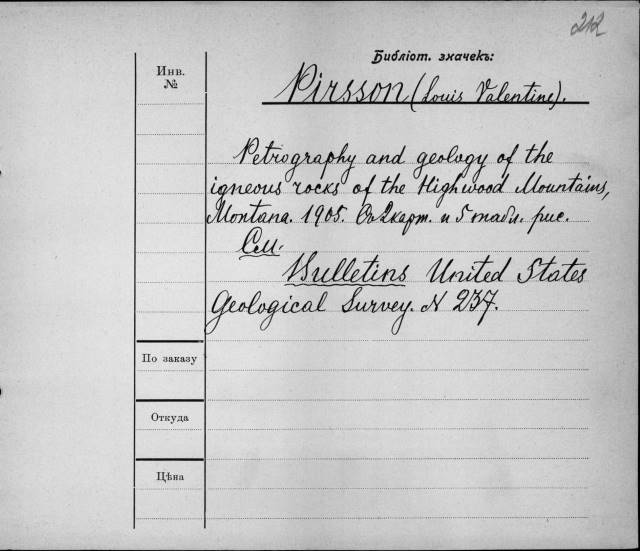 212
Библіот. значекъ:
Инв.
№
Pirsson (Louis Valentine).
Petrography and geology of the
igneous rocks of the Highwood Mountains,
Montana. 1905. Съ 2 карт. и 5 табл. рис.
См.
Bulletins United States
Geological Survey. N 237.
По заказу
Откуда
Цѣна